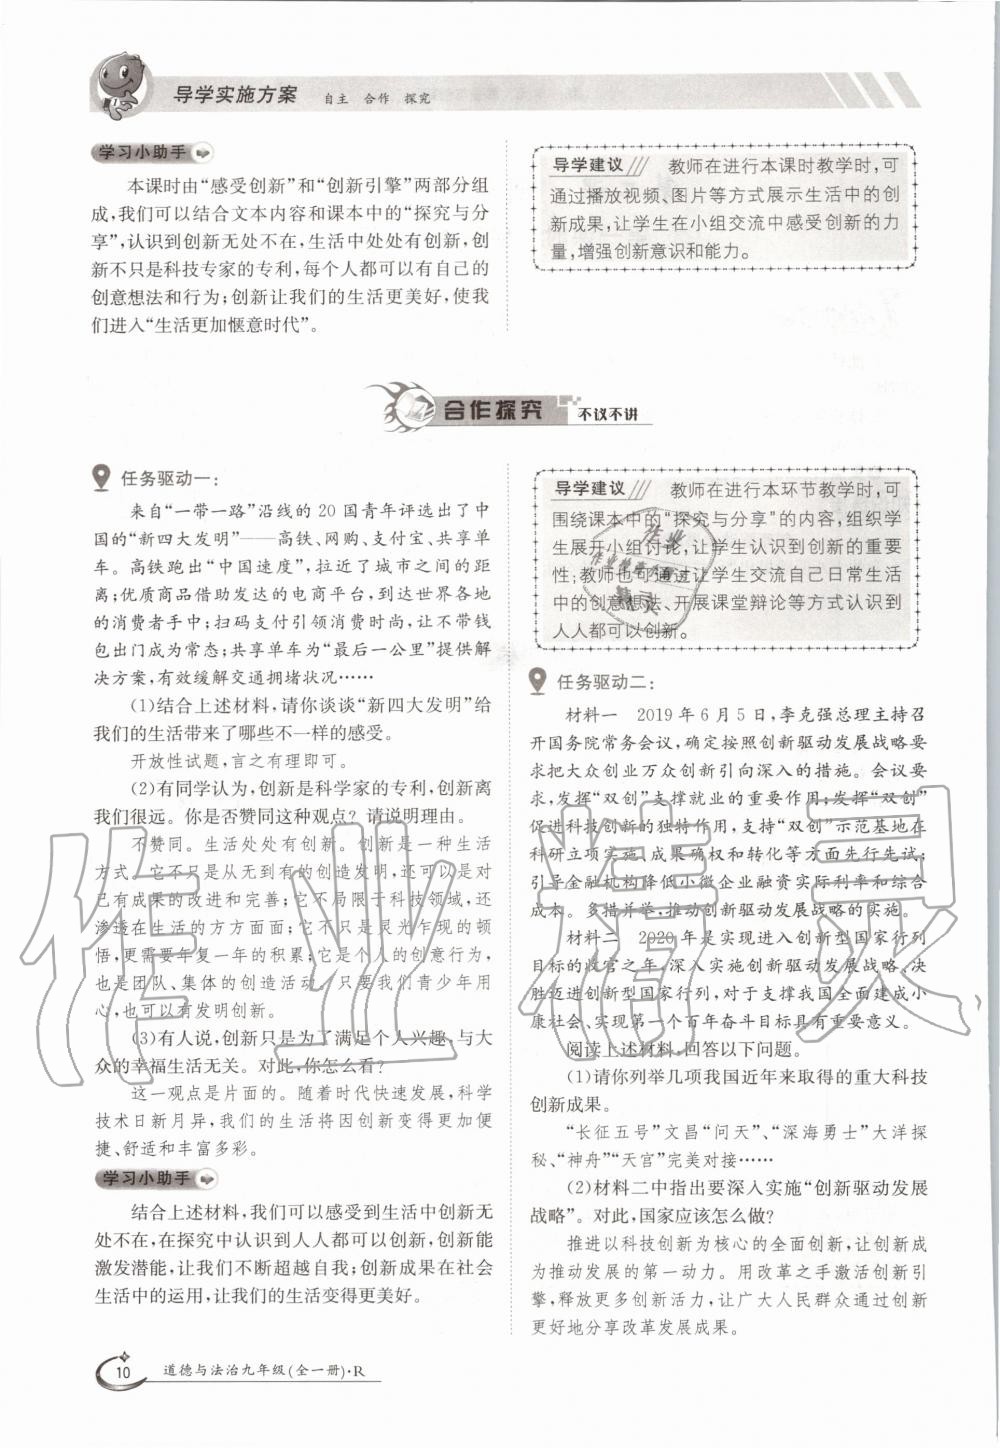 导学实施方案 自主 合作 探究
学习小助手
本课时由“感受创新”和“创新引擎”两部分组
成,我们可以结合文本内容和课本中的“探究与分
享”,认识到创新无处不在,生活中处处有创新,创
新不只是科技专家的专利,每个人都可以有自己的
创意想法和行为;创新让我们的生活更美好,使我
们进入“生活更加惬意时代”。
导学建议 教师在进行本课时教学时,可
通过播放视频、图片等方式展示生活中的创
新成果,让学生在小组交流中感受创新的力
量,增强创新意识和能力。
合作探究 不议不讲
任务驱动一:
来自“一带一路”沿线的 20 国青年评选出了中
国的“新四大发明”——高铁、网购、支付宝、共享单
车。高铁跑出“中国速度”,拉近了城市之间的距
离;优质商品借助发达的电商平台,到达世界各地
的消费者手中;扫码支付引领消费时尚,让不带钱
包出门成为常态;共享单车为“最后一公里”提供解
决方案,有效缓解交通拥堵状况……
(1)结合上述材料,请你谈谈“新四大发明”给
我们的生活带来了哪些不一样的感受。
开放性试题,言之有理即可。
(2)有同学认为,创新是科学家的专利,创新离
我们很远。你是否赞同这种观点？请说明理由。
不赞同。生活处处有创新。创新是一种生活
方式,它不只是从无到有的创造发明,还可以是对
已有成果的改进和完善;它不局限于科技领域,还
渗透在生活的方方面面;它不只是灵光乍现的顿
悟,更需要年复一年的积累;它是个人的创意行为,
也是团队、集体的创造活动。只要我们青少年用
心,也可以有发明创新。
(3)有人说,创新只是为了满足个人兴趣,与大
众的幸福生活无关。对此,你怎么看?
这一观点是片面的。随着时代快速发展,科学
技术日新月异,我们的生活将因创新变得更加便
捷、舒适和丰富多彩。
学习小助手
结合上述材料,我们可以感受到生活中创新无
处不在,在探究中认识到人人都可以创新,创新能
激发潜能,让我们不断超越自我;创新成果在社会
生活中的运用,让我们的生活变得更美好。
导学建议 教师在进行本环节教学时,可
围绕课本中的“探究与分享”的内容,组织学
生展开小组讨论,让学生认识到创新的重要
性;教师也可通过让学生交流自己日常生活
中的创意想法、开展课堂辩论等方式认识到
人人都可以创新。
任务驱动二:
材料一 2019 年 6 月 5 日,李克强总理主持召
开国务院常务会议,确定按照创新驱动发展战略要
求把大众创业万众创新引向深入的措施。会议要
求,发挥“双创”支撑就业的重要作用;发挥“双创”
促进科技创新的独特作用,支持“双创”示范基地在
科研立项实施、成果确权和转化等方面先行先试;
引导金融机构降低小微企业融资实际利率和综合
成本。多措并举,推动创新驱动发展战略的实施。
材料二 2020 年是实现进入创新型国家行列
目标的收官之年,深入实施创新驱动发展战略、决
胜迈进创新型国家行列,对于支撑我国全面建成小
康社会、实现第一个百年奋斗目标具有重要意义。
阅读上述材料,回答以下问题。
(1)请你列举几项我国近年来取得的重大科技
创新成果。
“长征五号”文昌“问天”、“深海勇士”大洋探
秘、“神舟”“天宫”完美对接……
(2)材料二中指出要深入实施“创新驱动发展
战略”。对此,国家应该怎么做?
推进以科技创新为核心的全面创新,让创新成
为推动发展的第一动力。用改革之手激活创新引
擎,释放更多创新活力,让广大人民群众通过创新
更好地分享改革发展成果。
10 道德与法治九年级(全一册)·R
作业精灵